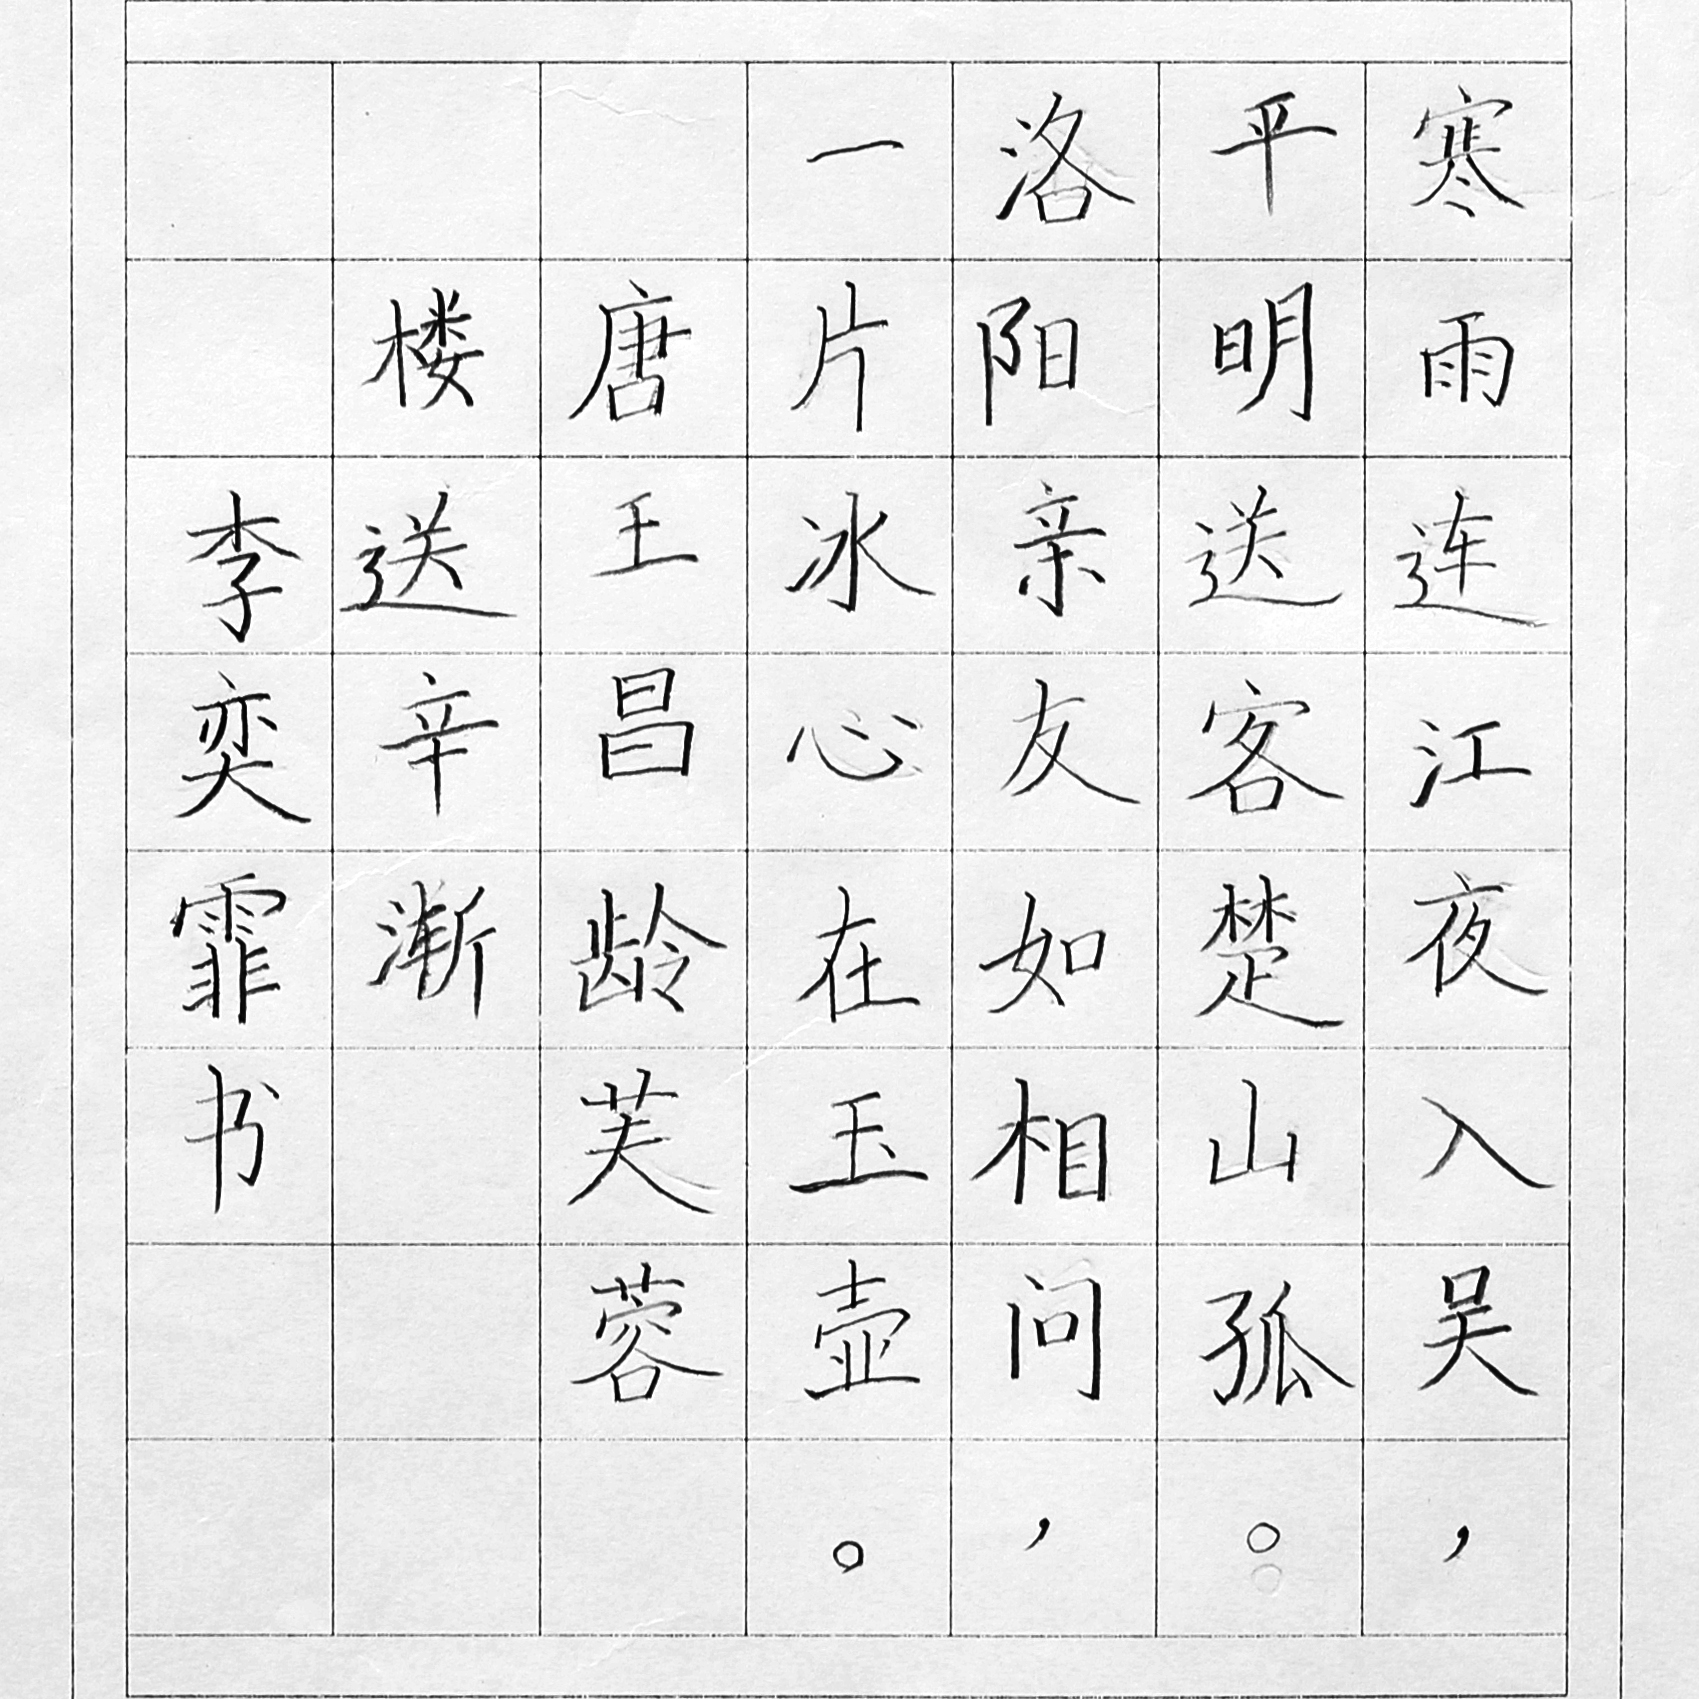 寒雨连江夜入吴，
平明送客楚山孤。
洛阳亲友如相问，
一片冰心在玉壶。
唐王昌龄芙蓉
楼送辛渐
李奕霏书